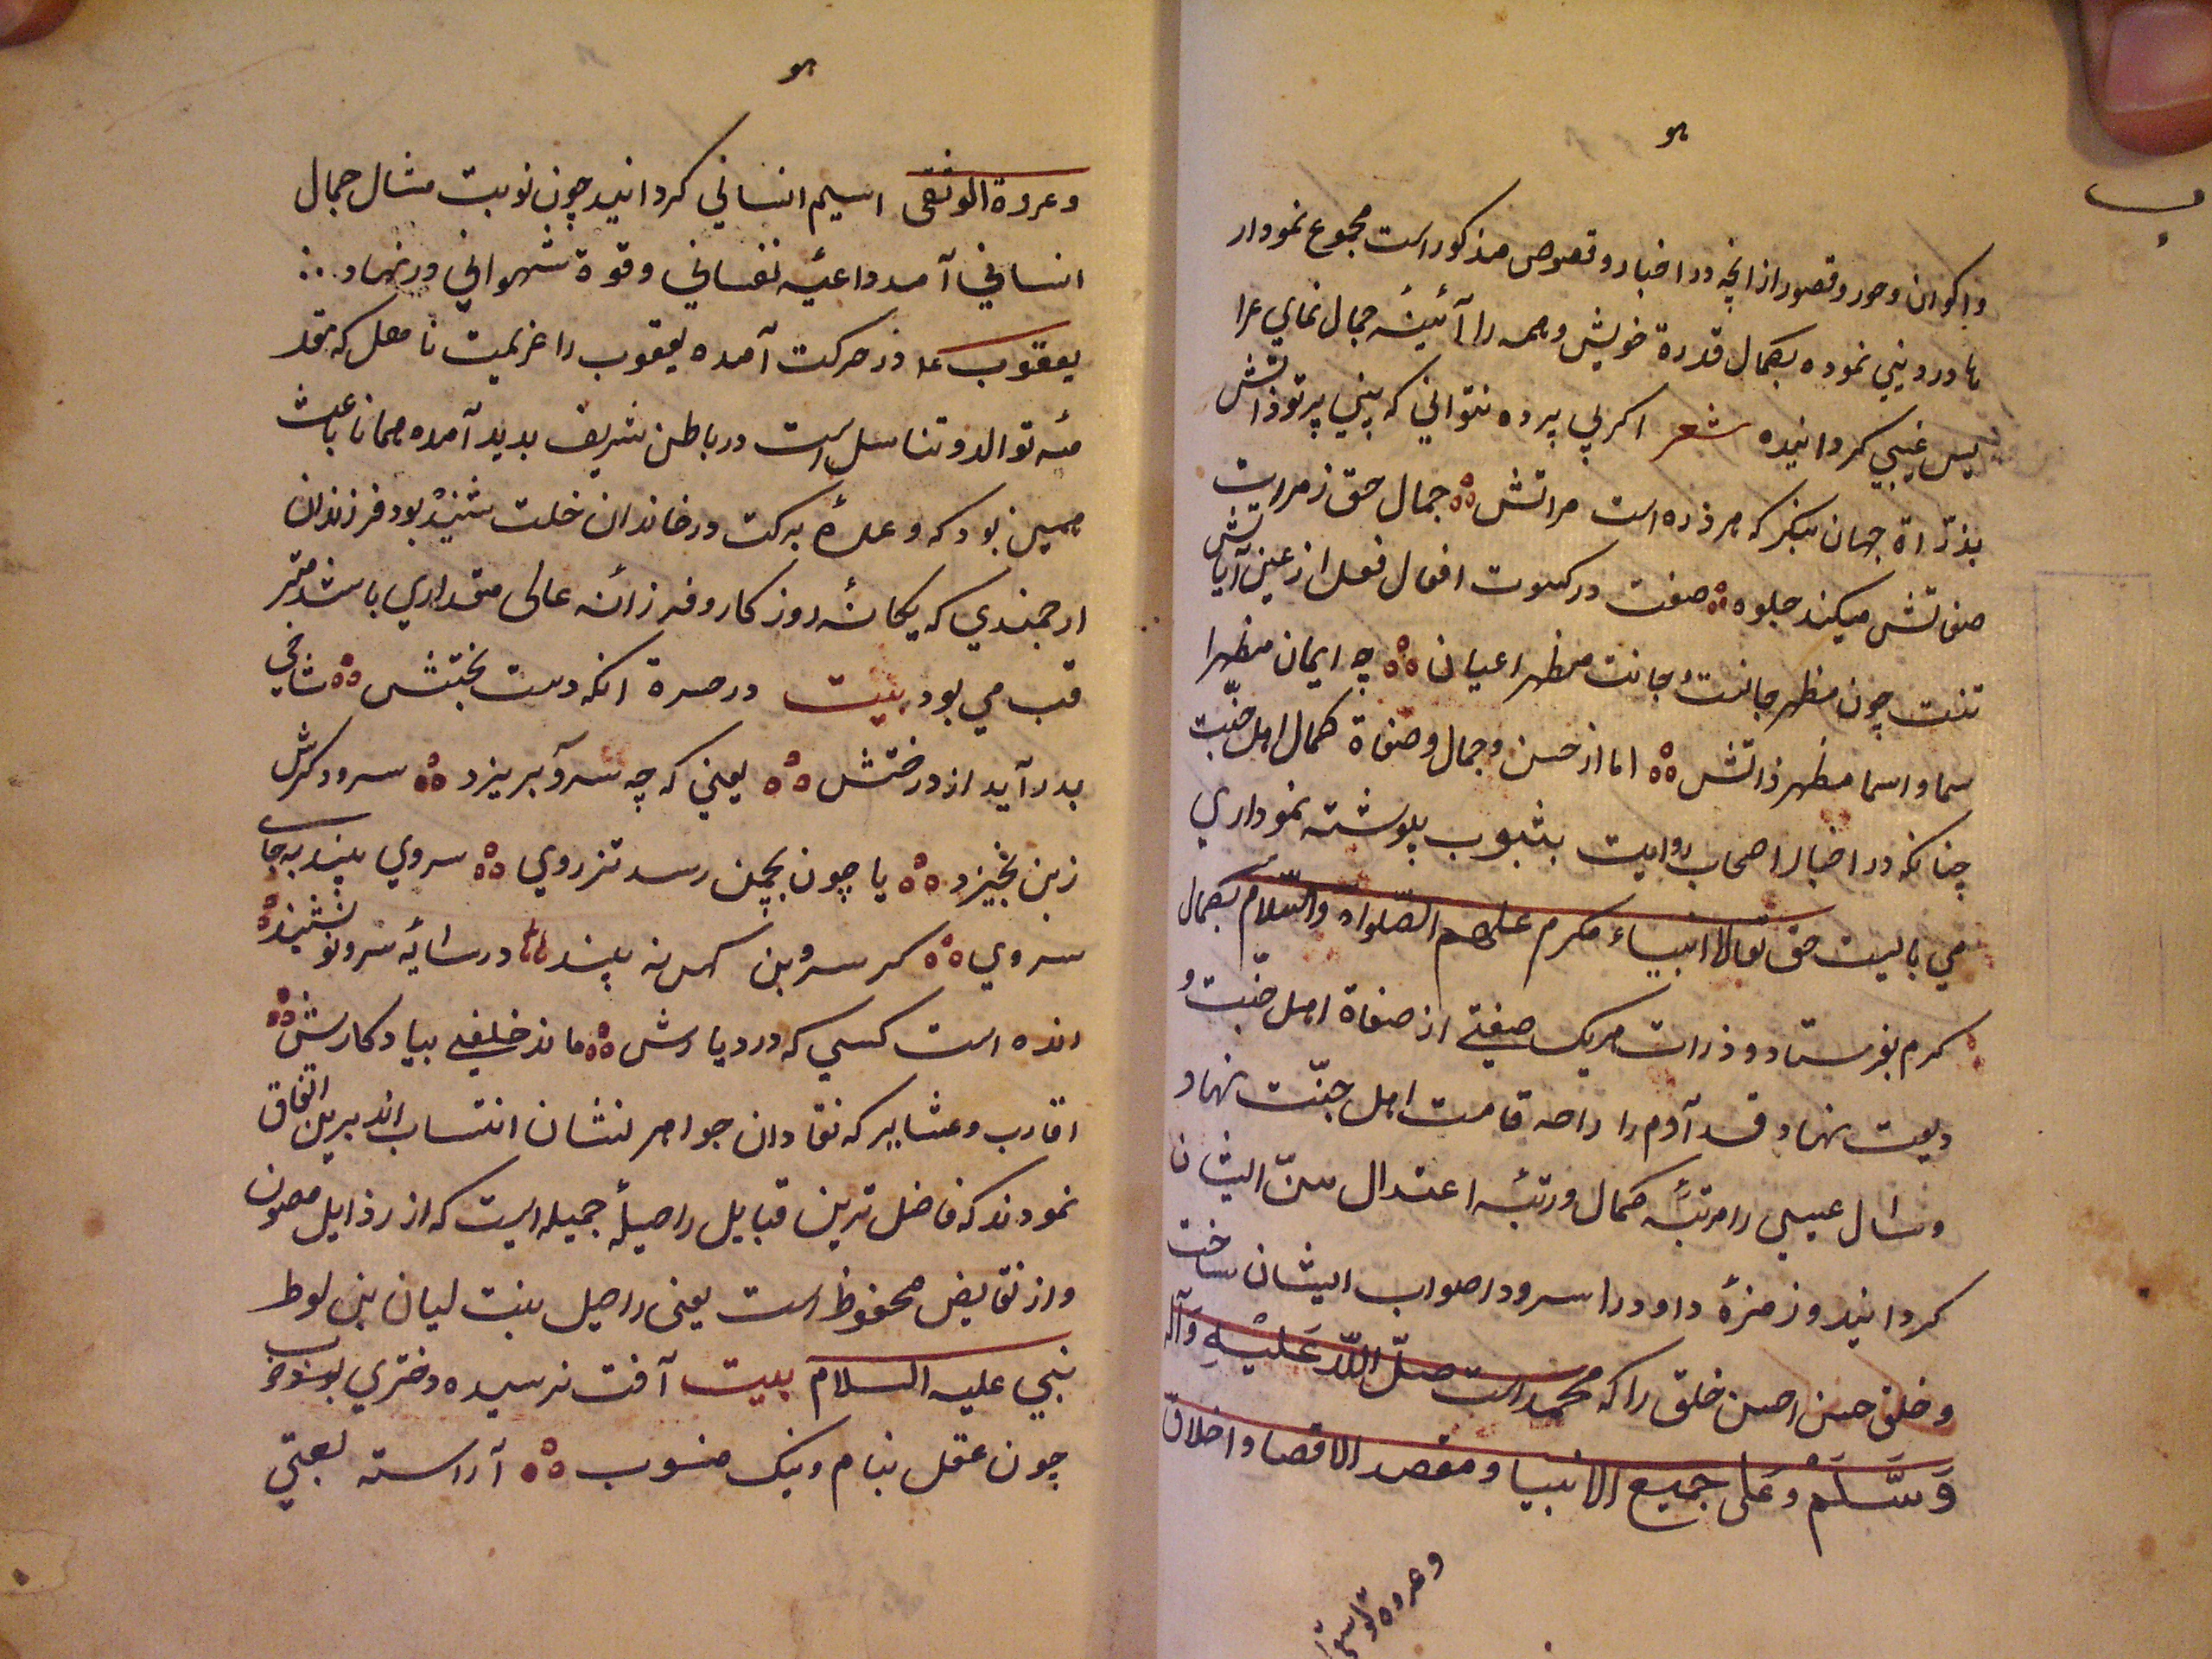 هو
ب
واکوان وحور وقصور از انچه در اخبار وقصوص مذکور است مجموع نمودار
ها در دنیی نموده بکمال قدرة خویش وهمه را آئینهٔ جمال نمای عرا
یس غیبی کردانیده شعر اکر بی پرده نتوانی که بینی پرتو ذاتش
بذرّاة جهان بنکر که هر ذره است مراتش جمال حق ز مرات
صفاتش میکند جلوه صفت در کسوت افعال فعل از عین آیاتش
تنت چون مظهر جانت وجانت مظهر اعیان چه ایمان مظهر
سما واسما مظهر ذاتش اما از حسن وجمال وصفاة کمال اهل جنّت
چنانکه در اخبار اصحاب روایت بثبوب پیوشته نموداری
می بایست حق تعالی انبیاء مکرم علیهم الصّلواة والسّلام بکمال
کرم بفرستاد و در ذات هریک صفتی از صفاة اهل جنّت و
دیعت نهاد قد آدم را راصه قامت اهل جنّت نهاد
وسال عیسی را مرتبهٔ کمال ورتبهٔ اعتدال سنّ ایشان
کردانید وزمزهٔ داود را سرود اصواب ایشان ساخت
وخلق حسن احسن خلق را که محمد است صلّی اللّه عَلَیْهِ وَآله
وَسَّلَمْ وعَلی جمیع الانبیا ومقصد الاقصا واخلاق
وعروه الوثقی
هو
وعروة الوثقی اسیم انسانی کردانید چون نوبت مثال جمال
انسانی آمد داعیهٔ نفسانی وقوة شهوانی در نهاد
یعقوب عه در حرکت آمده یعقوب را عزیمت تاهل که مقد
مهٔ توالد وتناسل است در باطن شریف بدید آمده همانا باعث
همین بود که وعدهٔ برکت در خاندان خلت شنید بود فرزندان
ارجمندی که یکانهٔ روزکار وفرزانهٔ عالی مقداری باشد متر
قب می بود بیت در حسرة انکه دست بختش شاخی
بدر آید از درختش یعنی که چه سرو بریزد سرو دکرش
زبن بخیزد یا چون بچمن رسد تزروی سروی بیند به جای
سروی کر سرو بن کهن نه بیند در سایهٔ سرو نو نشیند
زنده است کسی که در دیارش ماند خلفی بیادکارش
اقارب وعشایر که نقادان جواهر نشان انتساب اند برین اتفاق
نمودند که فاضل ترین قبایل راحیلهٔ جمیله است که از رذایل مصون
واز نقایض محفوظ است یعنی راحیل بنت لیان بن لوط
نبی علیه السلام بیت آفت نرسیده دختری بود خوب
چون عقل بنام ونیک منسوب آراسته لعبتی